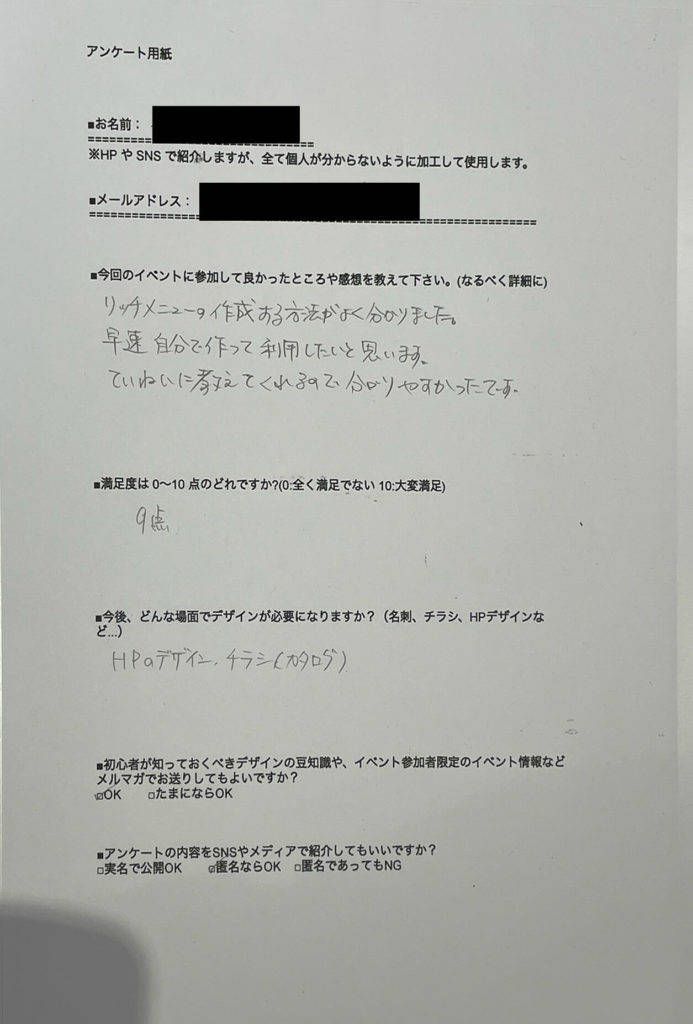 アンケート用紙
■お名前：
※HP や SNS で紹介しますが、全て個人が分からないように加工して使用します。
■メールアドレス：
■今回のイベントに参加して良かったところや感想を教えて下さい。(なるべく詳細に)
リッチメニューの作成する方法がよく分かりました。
早速 自分で作って 利用したいと思います。
ていねいに教えてくれるので 分かりやすかったです。
■満足度は 0〜10 点のどれですか?(0:全く満足でない 10:大変満足)
9点
■今後、どんな場面でデザインが必要になりますか？（名刺、チラシ、HPデザインな
ど...）
HPのデザイン、チラシ(カタログ)
■初心者が知っておくべきデザインの豆知識や、イベント参加者限定のイベント情報など
メルマガでお送りしてもよいですか？
☑OK □たまにならOK
■アンケートの内容をSNSやメディアで紹介してもいいですか？
□実名で公開OK ☑匿名ならOK □匿名であってもNG